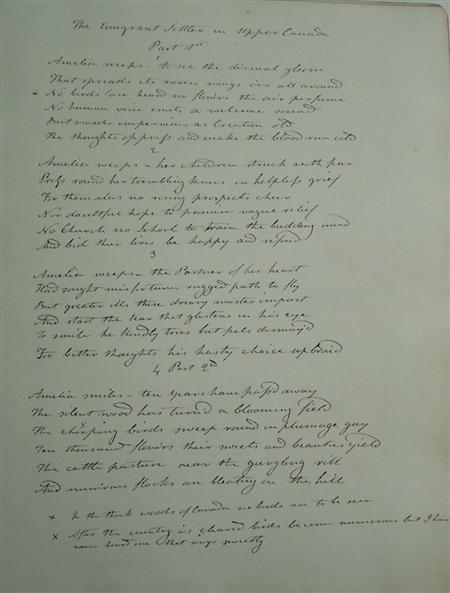 The Emigrant Settler in Upper Canada
Part 1st
1
Amelia weeps - to see the dismal gloom
That spreads its raven wings o'er all around
x No birds are heard no flowers the air perfume
No human voice emits a welcome sound
But woods impervious as Creation old
The thoughts oppress and make the blood run cold
2
Amelia weeps - her children struck with fear
Press round her trembling knees in helpless grief
For them alas no rising prospects cheer
Nor doubtful hope to promise vague relief
No Church no School to train the budding mind
And bid their lives be happy and refined
3
Amelia weeps - the Partner of her heart
Had sought misfortunes rugged path to fly
But greater ills these dreary wastes impart
And start the tear that glistens in his eye
To smile he kindly tries but feels dismay'd
For better thoughts his hasty choice upbraid
4 Part 2d
Amelia smiles - ten years have pass'd away
The silent wood has turned a blooming field
The chirping birds sweep round in plumage gay
Ten thousand flowers their sweets and beauties yield
The cattle pasture near the gurgling rill
And numerous flocks are bleating on the hill
x In the thick woods of Canada no birds are to be seen
x After the country is cleared birds become numerous but I have
never heard one that sings sweetly